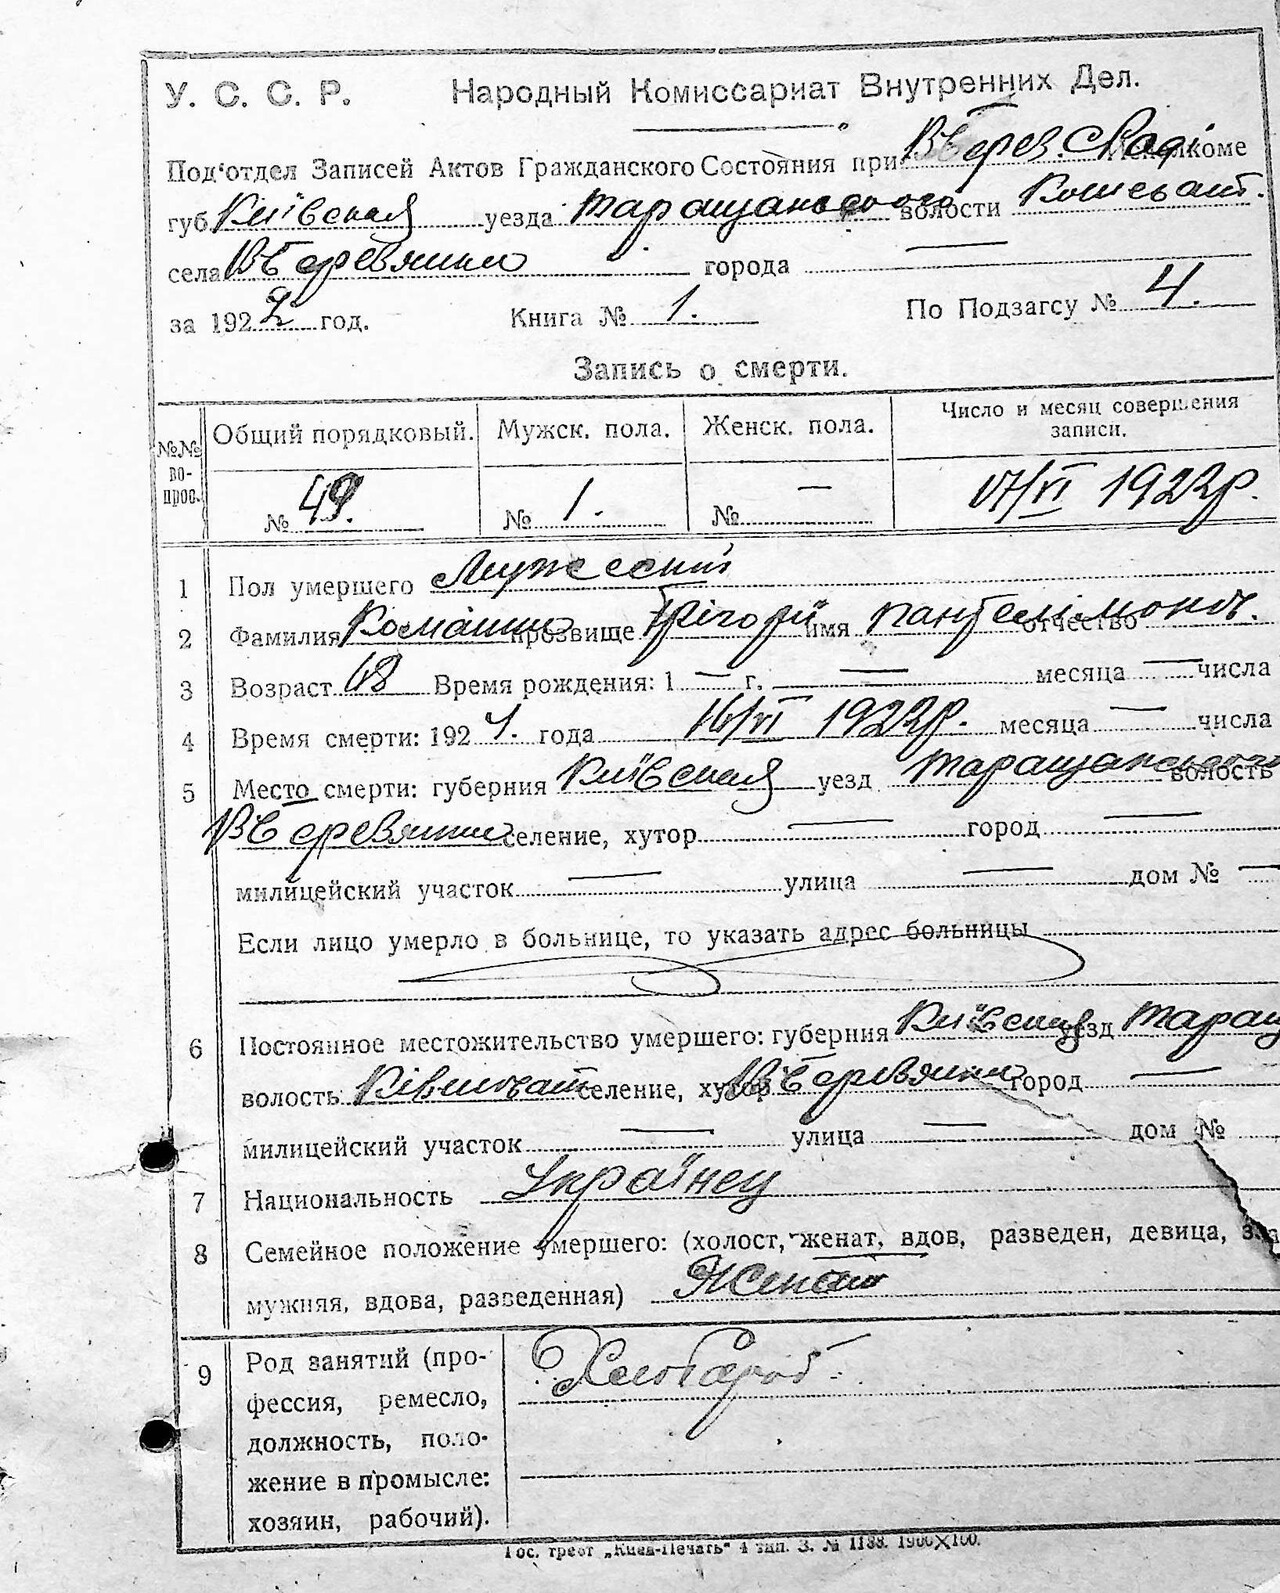 У. С. С. Р. Народный Комиссариат Внутренних Дел.
Под'отдел Записей Актов Гражданского Состояния при В Берез.
губ. Київская уезда Таращанського волости
села города —
за 1922 год. Книга № 1. По Подзагсу № 4.
Запись о смерти.
№№ вопрос. Общий порядковый. Мужск. пола. Женск. пола. Число и месяц совершения записи.
№ 49. № 1. № — 17/VI 1922р.
1 Пол умершего Мужеский
2 Фамилия прозвище Грігорій имя Пантелімонов. отчество
3 Возраст 68 Время рождения: 1 — г. — месяца — числа
4 Время смерти: 192 года 16/VI 1922р. месяца — числа
5 Место смерти: губерния Київская уезд Таращанського волость
селение, хутор — город —
милицейский участок — улица — дом № —
Если лицо умерло в больнице, то указать адрес больницы
6 Постоянное местожительство умершего: губерния Київская уезд Таращ
волость селение, хутор город —
милицейский участок — улица — дом №
7 Национальность Українец
8 Семейное положение умершего: (холост, женат, вдов, разведен, девица, за
мужняя, вдова, разведенная) Женат
9 Род занятий (про- Хлебороб
фессия, ремесло,
должность, поло-
жение в промысле:
хозяин, рабочий).
Гос. трест „Киев-Печать" 4 тип. З. № 1188. 1900X100.